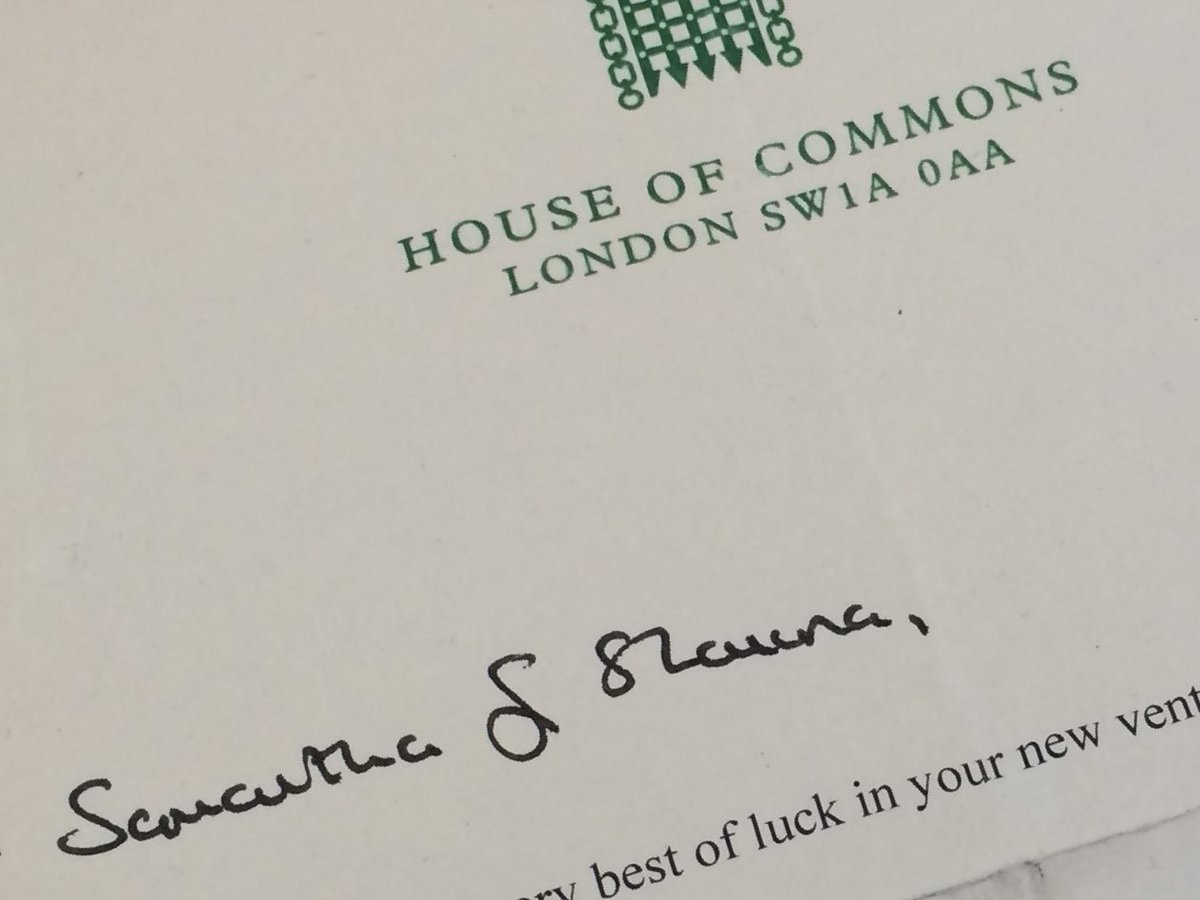 HOUSE OF COMMONS
LONDON SW1A 0AA
Samantha & Shauna,
ry best of luck in your new vent